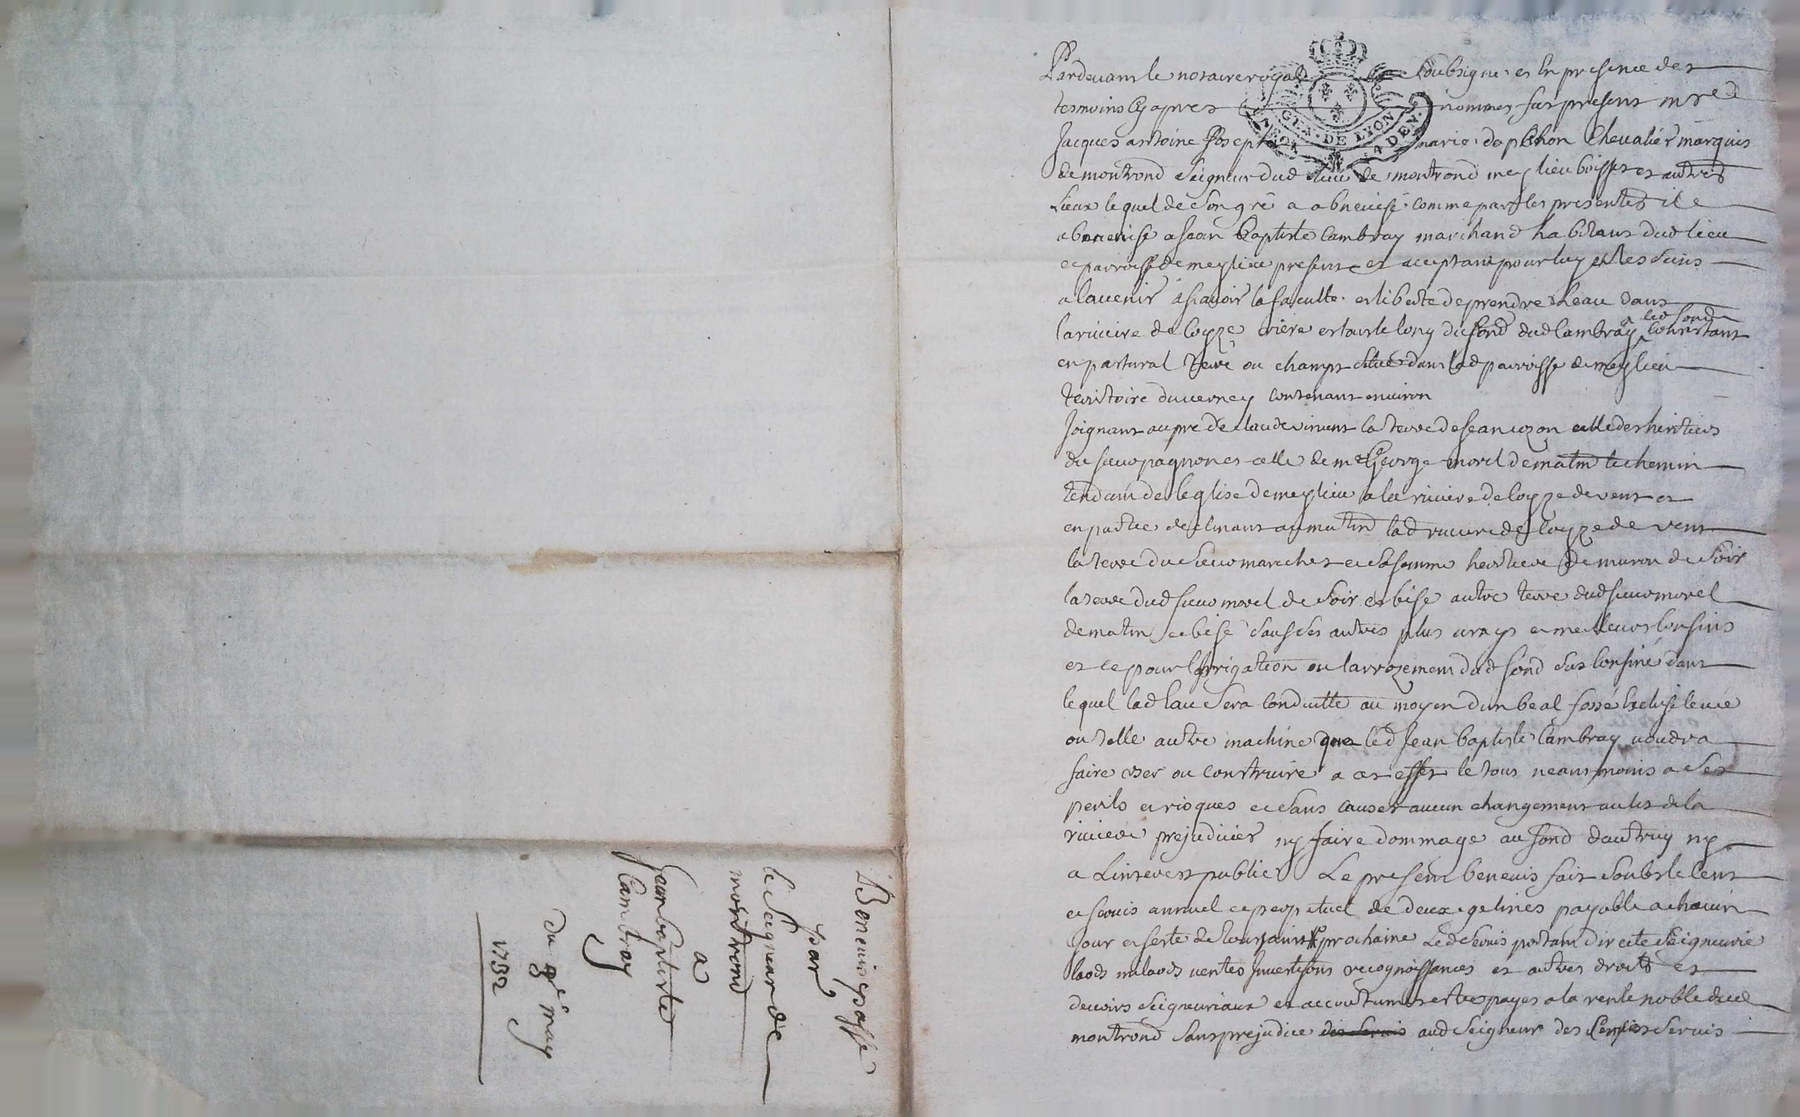 Pardevant le notaire royal Soubsigné et En presence des
tesmoins Cy apres nommes fut present mre
GEN. DE LYON
4 DEN.
Jacques antoine Joseph marie deplhon Chevalier marquis
de montrond Seigneur dud lieu de montrond meylieu boisset et autres
Lieux lequel de Son gré a abnevisé comme par les presentes il
abnevise a Jean Baptiste Cambray marchand habitant dud lieu
et parroisse de meylieu present et aceptant pour luy et les Siens
a lavenir a scavoir la faculté et liberté de prendre Leau dans
la riviere de loyze riere et sur le long du fond dud Cambray led fond Consistant
en pastural terre ou champt situé dans lad parroisse de meylieu
territoire du verney contenant environ
Joignant au pré de Claude vincent la terre de Jean ozon celle des heritiers
du sieur pagnon et celle de mr George morel de matin le chemin
tendant de leglise de meylieu a la riviere de loyze de vent et
en partie declinant au matin lad riviere de loyze de vent
la terre du Sieur marchet et Sa femme heritiere de muron de Soir
la terre dud sieur morel de Soir et bise autre terre dud sieur morel
de matin et bise Sauf Ses autres plus vrays et meilleurs Confins
et ce pour lirrigation ou larrozement dud fond Sus Confiné dans
lequel lad Eau Sera Conduitte au moyen dun beal fossé Ecluse levée
ou telle autre machine que led Jean Baptiste Cambray voudra
faire oser ou Construire a cet effet le tout neantmoins a Ses
perils et risques et Sans Causer aucun changement au lit de la
riviere prejudicier ny faire dommage au fond dautruy ny
a Linterest public Le present benevis fait Soubs le Cens
et servis annuel et perpetuel de deux gelines payable a chacun
Jour et feste de toussaint prochaine Led Servis portant directe Seigneurie
laods milaods ventes Investisons recognoissances et autres droits et
devoirs Seigneuriaux et accoutumes estre payes a la rente noble dud
montrond Sans prejudice des Servis aud Seigneur des Servis
Benevis passé
par
le Seigneur de
montrond
a
Jean baptiste
Cambray
Du 8e may
1732